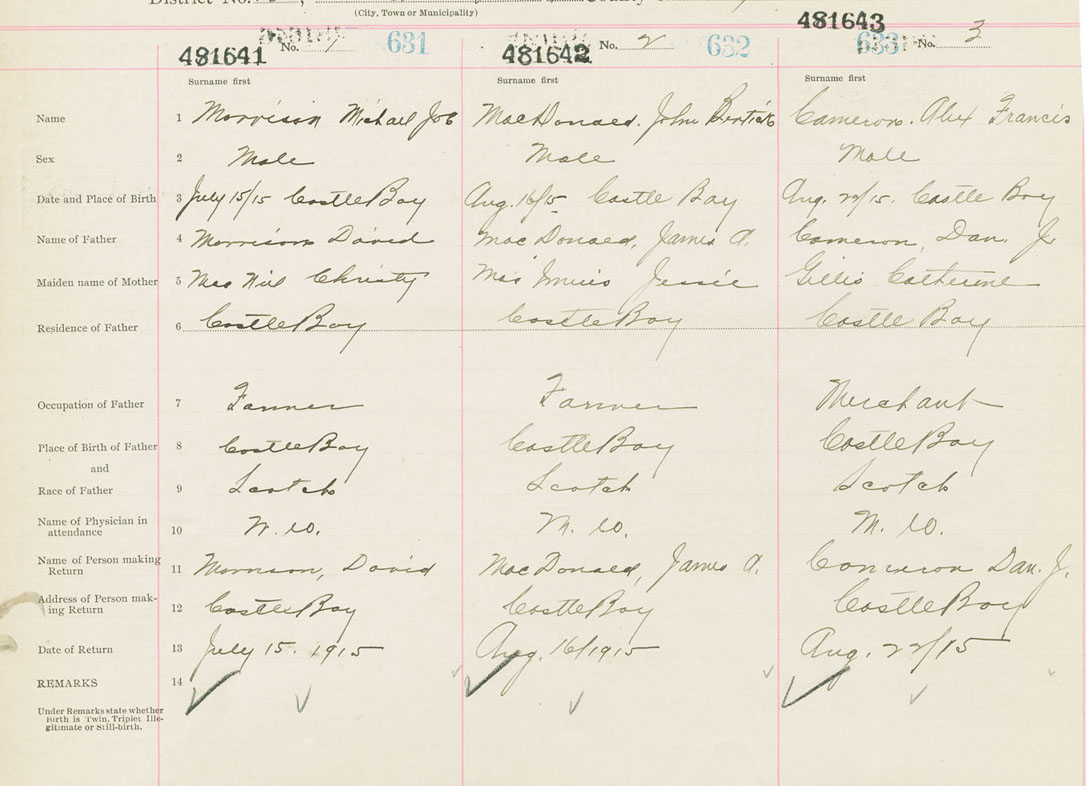 District No.
(City, Town or Municipality)
481641 No. 1 631 481642 No. 2 632 481643 633 No. 3
Surname first Surname first Surname first
Name 1 Morrison Michael Job MacDonald, John Cameron, Alex Francis
Sex 2 Male Male Male
Date and Place of Birth 3 July 15/15 Castle Bay Aug. 16/15 Castle Bay Aug. 22/15. Castle Bay
Name of Father 4 Morrison David MacDonald, James A. Cameron, Dan. J.
Maiden name of Mother 5 Mac Neil Christy Jessie Gillis Catherine
Residence of Father 6 Castle Bay Castle Bay Castle Bay
Occupation of Father 7 Farmer Farmer Merchant
Place of Birth of Father 8 Castle Bay Castle Bay Castle Bay
and
Race of Father 9 Scotch Scotch Scotch
Name of Physician in
attendance 10
Name of Person making
Return 11 Morrison, David MacDonald, James A. Cameron Dan. J.
Address of Person mak-
ing Return 12 Castle Bay Castle Bay Castle Bay
Date of Return 13 July 15. 1915 Aug. 16/1915 Aug. 22/15
REMARKS 14
Under Remarks state whether
Birth is Twin, Triplet Ille-
gitimate or Still-birth.